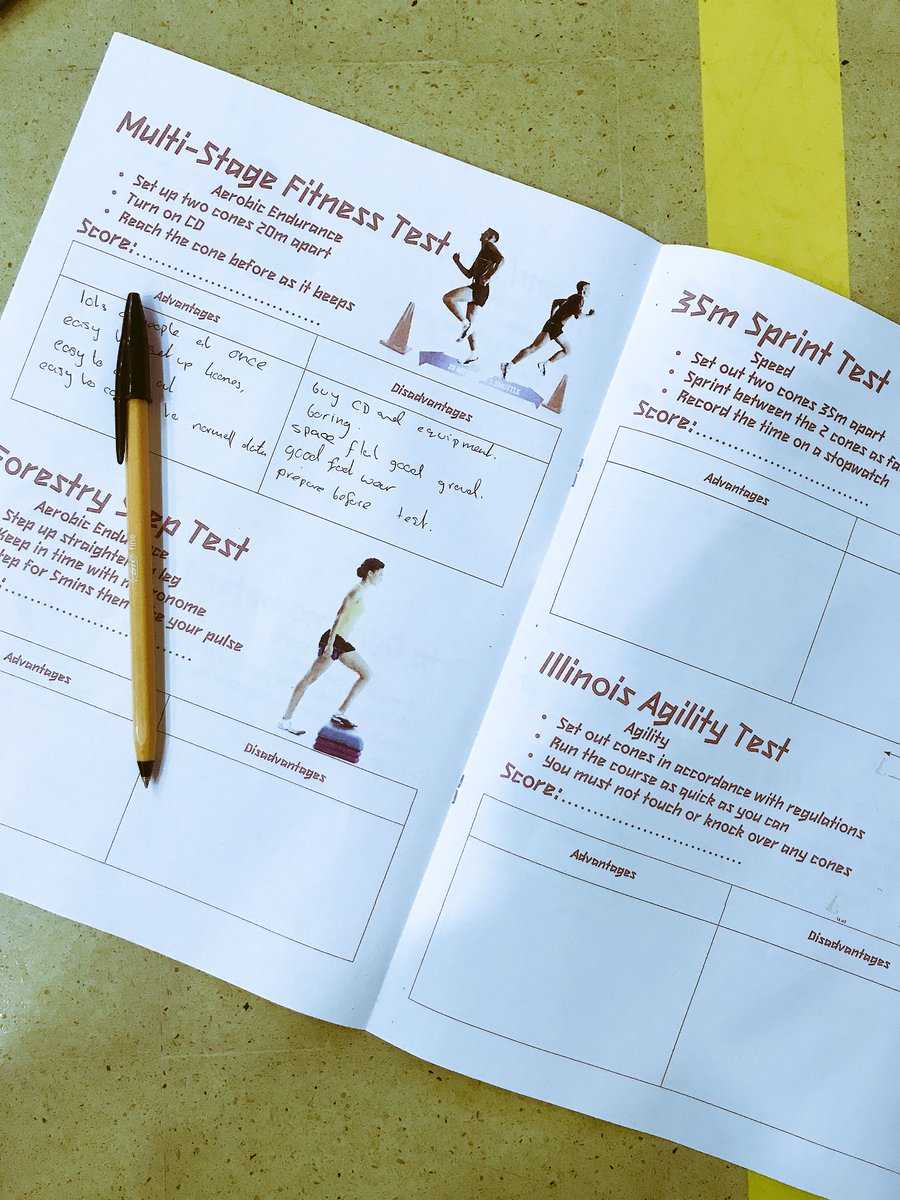 Multi-Stage Fitness Test
Aerobic Endurance
• Set up two cones 20m apart
• Turn on CD
• Reach the cone before as it beeps
Score:
Advantages
lots people at once
easy set up
easy to
easy to normal data
Disadvantages
buy CD and equipment.
boring.
space flat good
good foot wear
prepare before test.
Forestry Step Test
Aerobic
Step up straighten leg
Keep in time with
step for 5mins then your pulse
Advantages
Disadvantages
35m Sprint Test
Speed
• Set out two cones 35m apart
• Sprint between the 2 cones as
• Record the time on a stopwatch
Score:
Advantages
Illinois Agility Test
Agility
• Set out cones in accordance with regulations
• Run the course as quick as you can
• You must not touch or knock over any cones
Score:
Advantages
Disadvantages